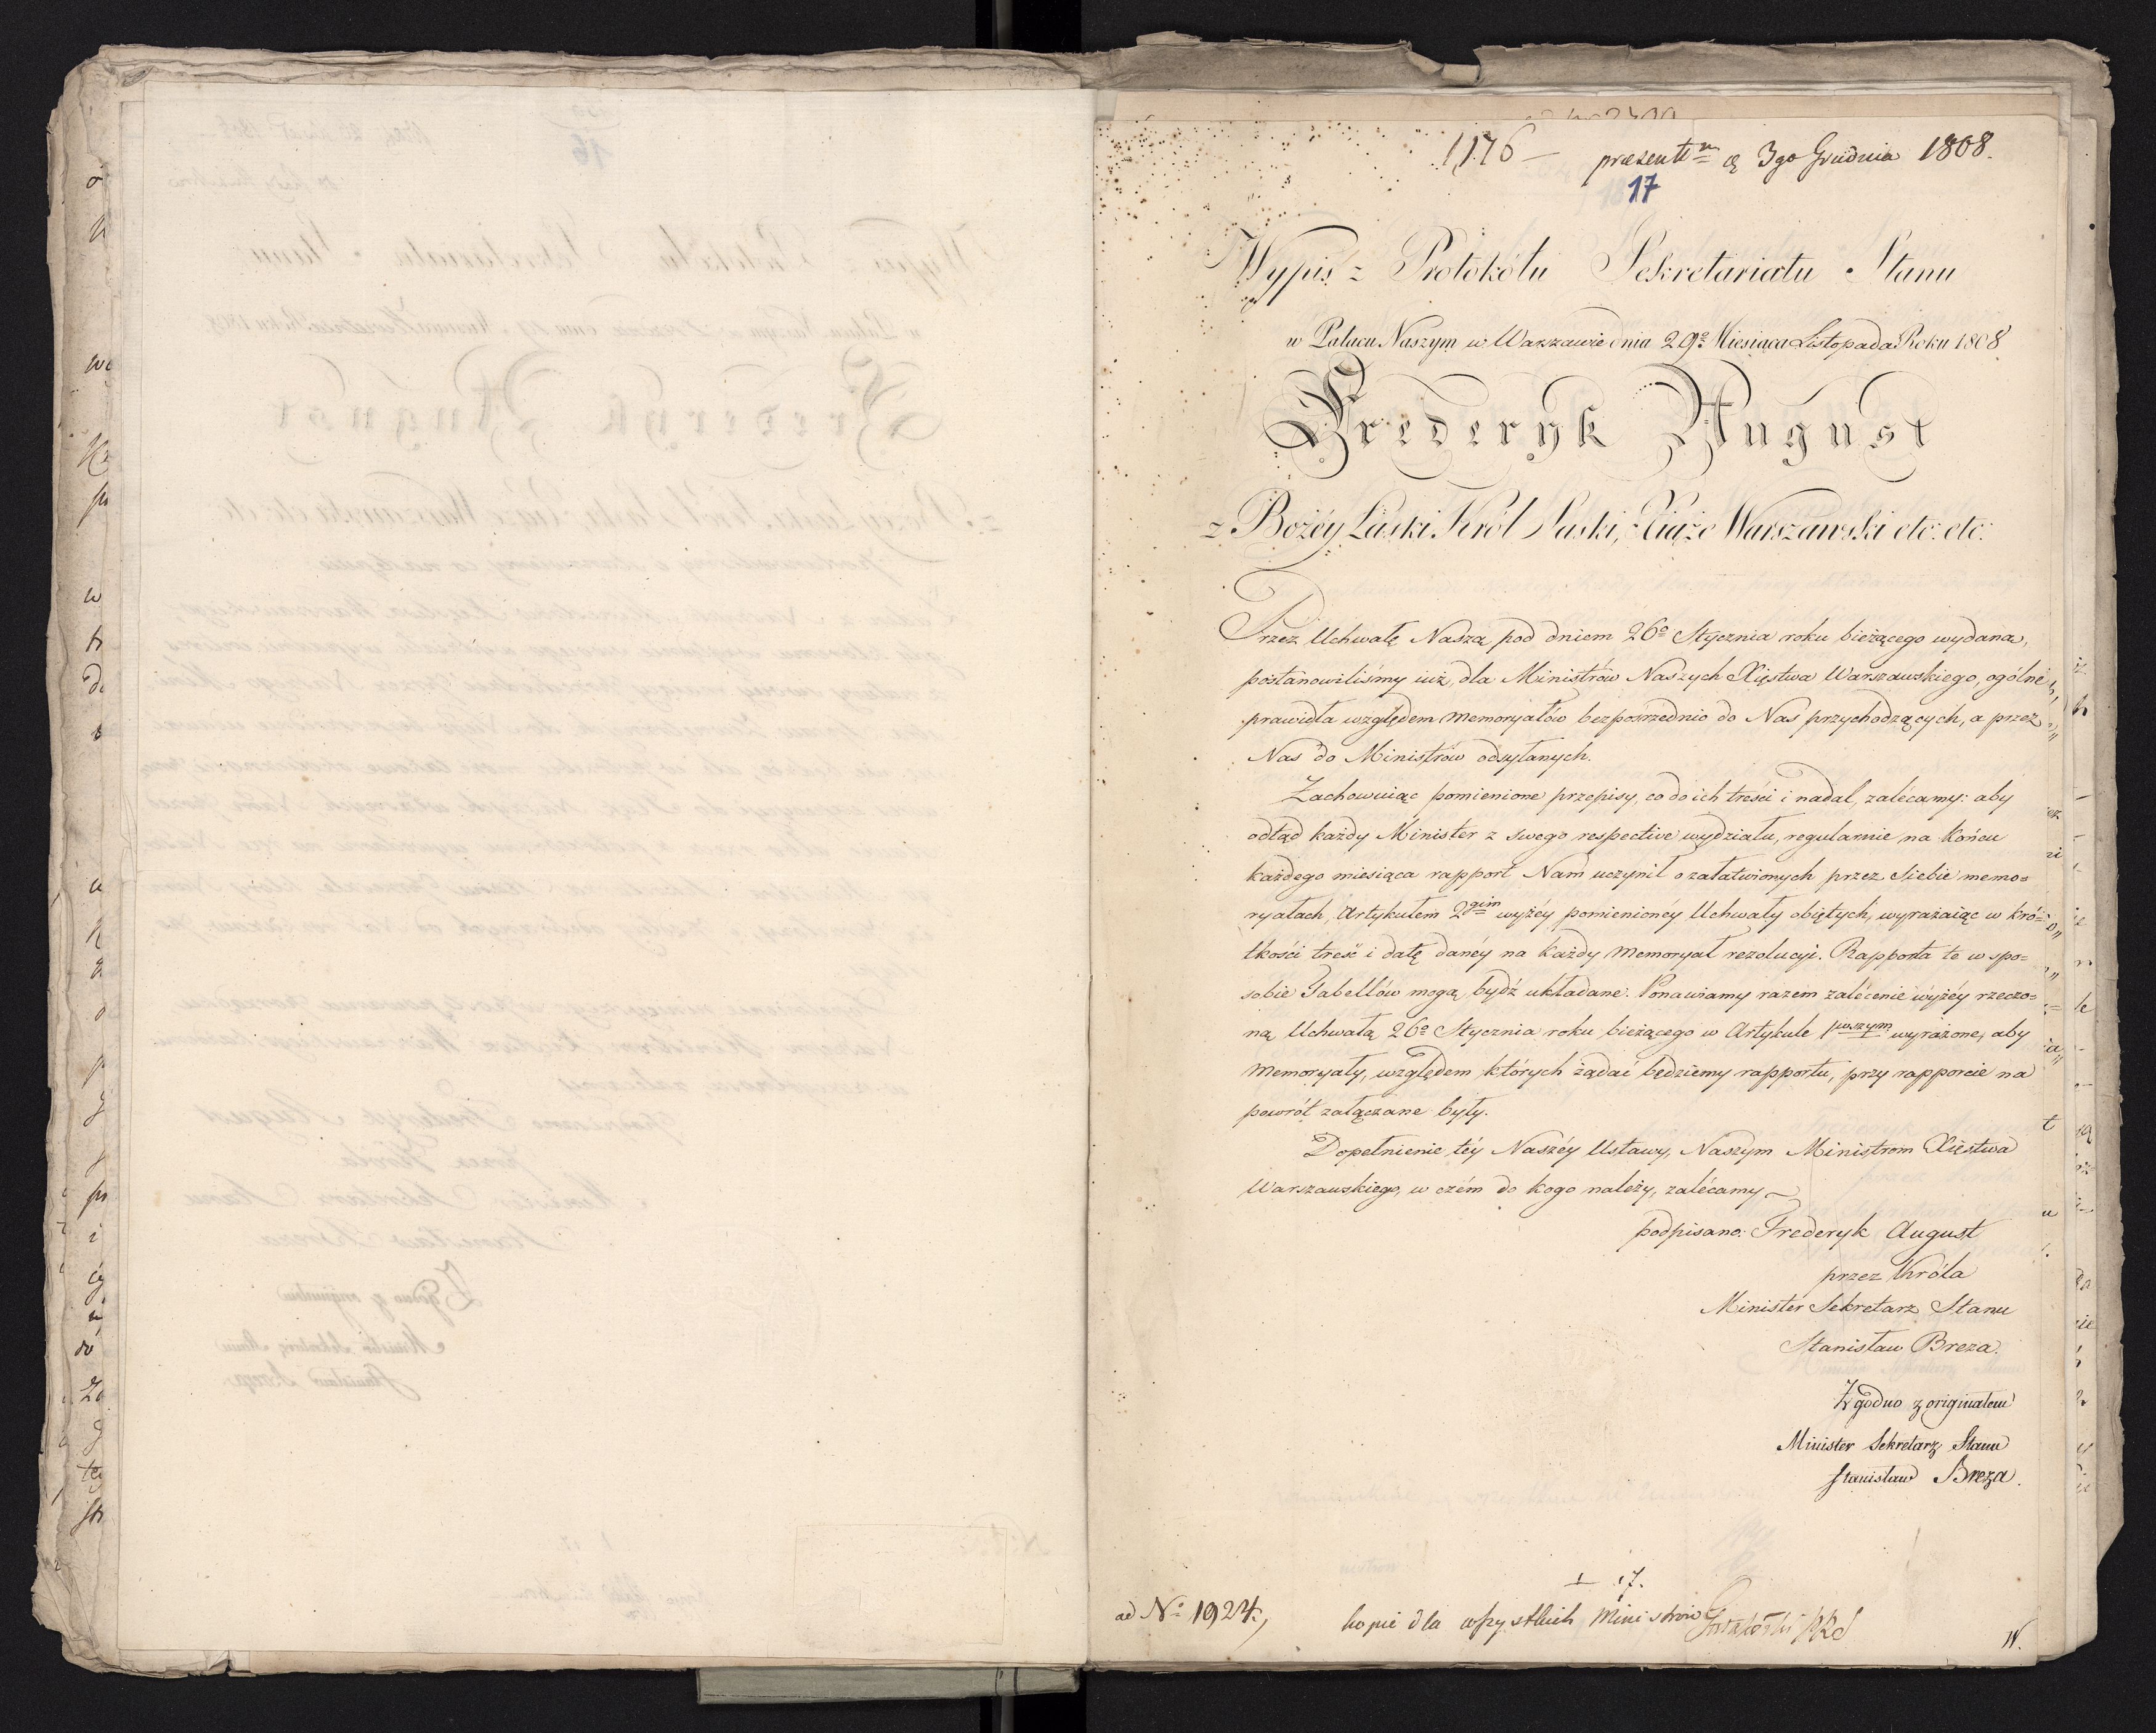 1,176 — præsent ą 3go Grudnia 1808.
17
Wypis z Protokółu Sekretariatu Stanu
w Pałacu Naszym w Warszawie dnia 29º Miesiąca Listopada Roku 1808
Frederyk August
z Bożéy Łaski Król Saski, Xiąże Warszawski etc: etc:
Przez Uchwałę Naszą pod dniem 26º Stycznia roku bieżącego wydaną,
postanowiliśmy iuż, dla Ministrów Naszych Xięstwa Warszawskiego, ogólne
prawidła względem memoryałów bezpośrzednio do Nas przychodzących, a przez
Nas do Ministrów odsyłanych.
Zachowuiąc pomienione przepisy, co do ich treści i nadal, zalécamy: aby
odtąd każdy Minister z swego respective wydziału, regularnie na końcu
każdego miesiąca rapport Nam uczynił o załatwionych przez siebie memo=
ryałach, Artykułem 2gim wyżéy pomienionéy Uchwały obiętych, wyrażaiąc w kró=
tkości treść i datę danéy na każdy memoryał rezolucyi. Rapporta te w spo=
sobie Tabellów mogą bydź układane. Ponawiamy razem zalécenie wyżéy rzeczo=
ną Uchwałą 26º Stycznia roku bieżącego w Artykule pwszym wyrażone, aby
memoryały, względem których żądać będziemy rapportu, przy rapporcie na
powrót załączane były.
Dopełnienie téy Naszéy Ustawy, Naszym Ministrom Xięstwa
Warszawskiego, w czém do kogo należy, zalécamy
podpisano: Frederyk August
przez Króla
Minister Sekretarz Stanu
Stanisław Breza.
Zgodno z originałem
Minister Sekretarz Stanu
Stanisław Breza.
ad Nº 1924,
kopie dla wszystkich Ministrów